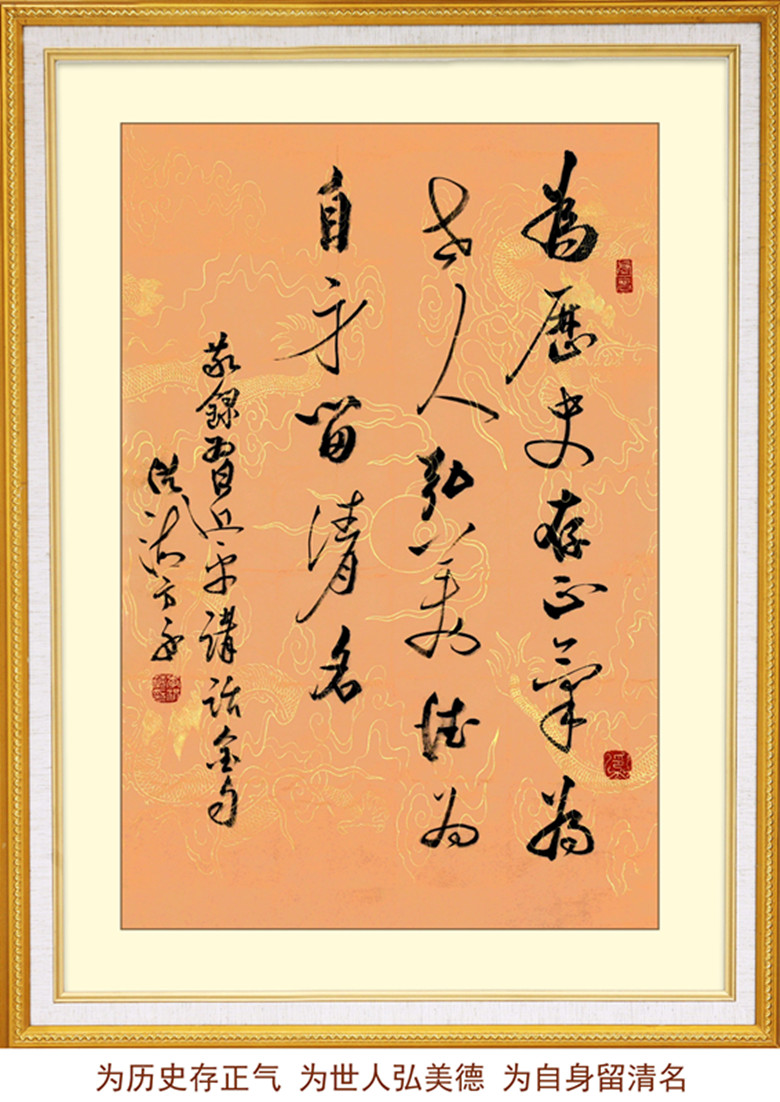 為歷史存正氣為
世人弘美德為
自身留清名
敬錄習近平講話金句
为历史存正气 为世人弘美德 为自身留清名